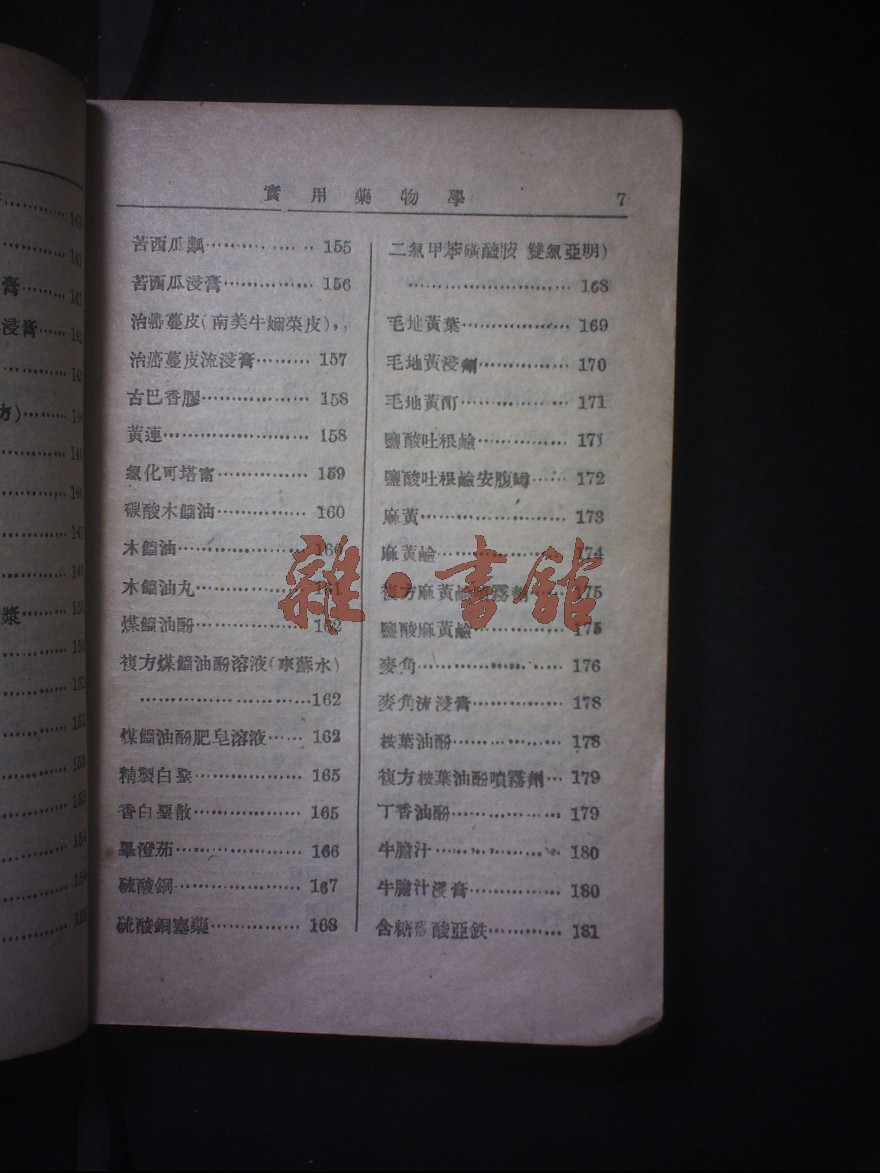 實用藥物學 7
苦西瓜瓤 155
苦西瓜浸膏 156
治癌蔓皮(南美牛嬭菜皮),,
治癌蔓皮流浸膏 157
古巴香膠 158
黃連 158
氯化可塔甯 159
碳酸木餾油 160
木餾油 160
木餾油丸 161
煤餾油酚 162
複方煤餾油酚溶液(來蘇水)
162
煤餾油酚肥皂溶液 162
精製白堊 165
香白堊散 165
蓽澄茄 166
硫酸銅 167
硫酸銅塞藥 168
二氯甲苯磺醯胺 雙氯亞明)
168
毛地黃葉 169
毛地黃浸劑 170
毛地黃酊 171
鹽酸吐根鹼 171
鹽酸吐根鹼安腹 172
麻黃 173
麻黃鹼 174
複方麻黃鹼噴霧劑 175
鹽酸麻黃鹼 175
麥角 176
麥角流浸膏 178
桉葉油酚 178
複方桉葉油酚噴霧劑 179
丁香油酚 179
牛膽汁 180
牛膽汁浸膏 180
含糖碳酸亞鉄 181
雜·書舘
膏
浸膏
方)
漿